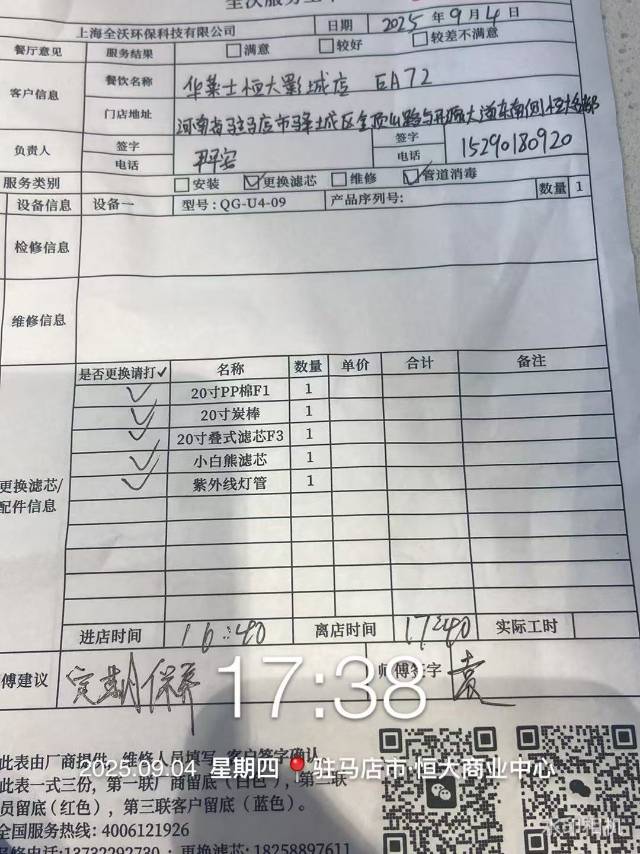 上海全沃环保科技有限公司 日期 2025年9月4日
餐厅意见 服务结果 满意 较好 较差不满意
客户信息 餐饮名称 华莱士恒大影城店 EA72
门店地址 河南省驻马店市驿城区金顶山路与开源大道东南侧恒大
负责人 签字 签字
电话 电话 15290180920
服务类别 安装 ✓更换滤芯 维修 ✓管道消毒
设备信息 设备一 型号:QG-U4-09 产品序列号: 数量 1
检修信息
维修信息
是否更换请打✓ 名称 数量 单价 合计 备注
✓ 20寸PP棉F1 1
✓ 20寸炭棒 1
✓ 20寸叠式滤芯F3 1
✓ 小白熊滤芯 1
✓ 紫外线灯管 1
更换滤芯/
配件信息
进店时间 16:40 离店时间 17:40 实际工时
傅建议 定期保养 师傅签字 袁
17:38
此表由厂商提供,维修人员填写,客户签字确认
2025.09.04 星期四 驻马店市·恒大商业中心
此表一式三份,第一联厂商留底(白色),第二联
员留底(红色),第三联客户留底(蓝色)。
全国服务热线:4006121926
修电话:13732292730 ;更换滤芯:18258897611